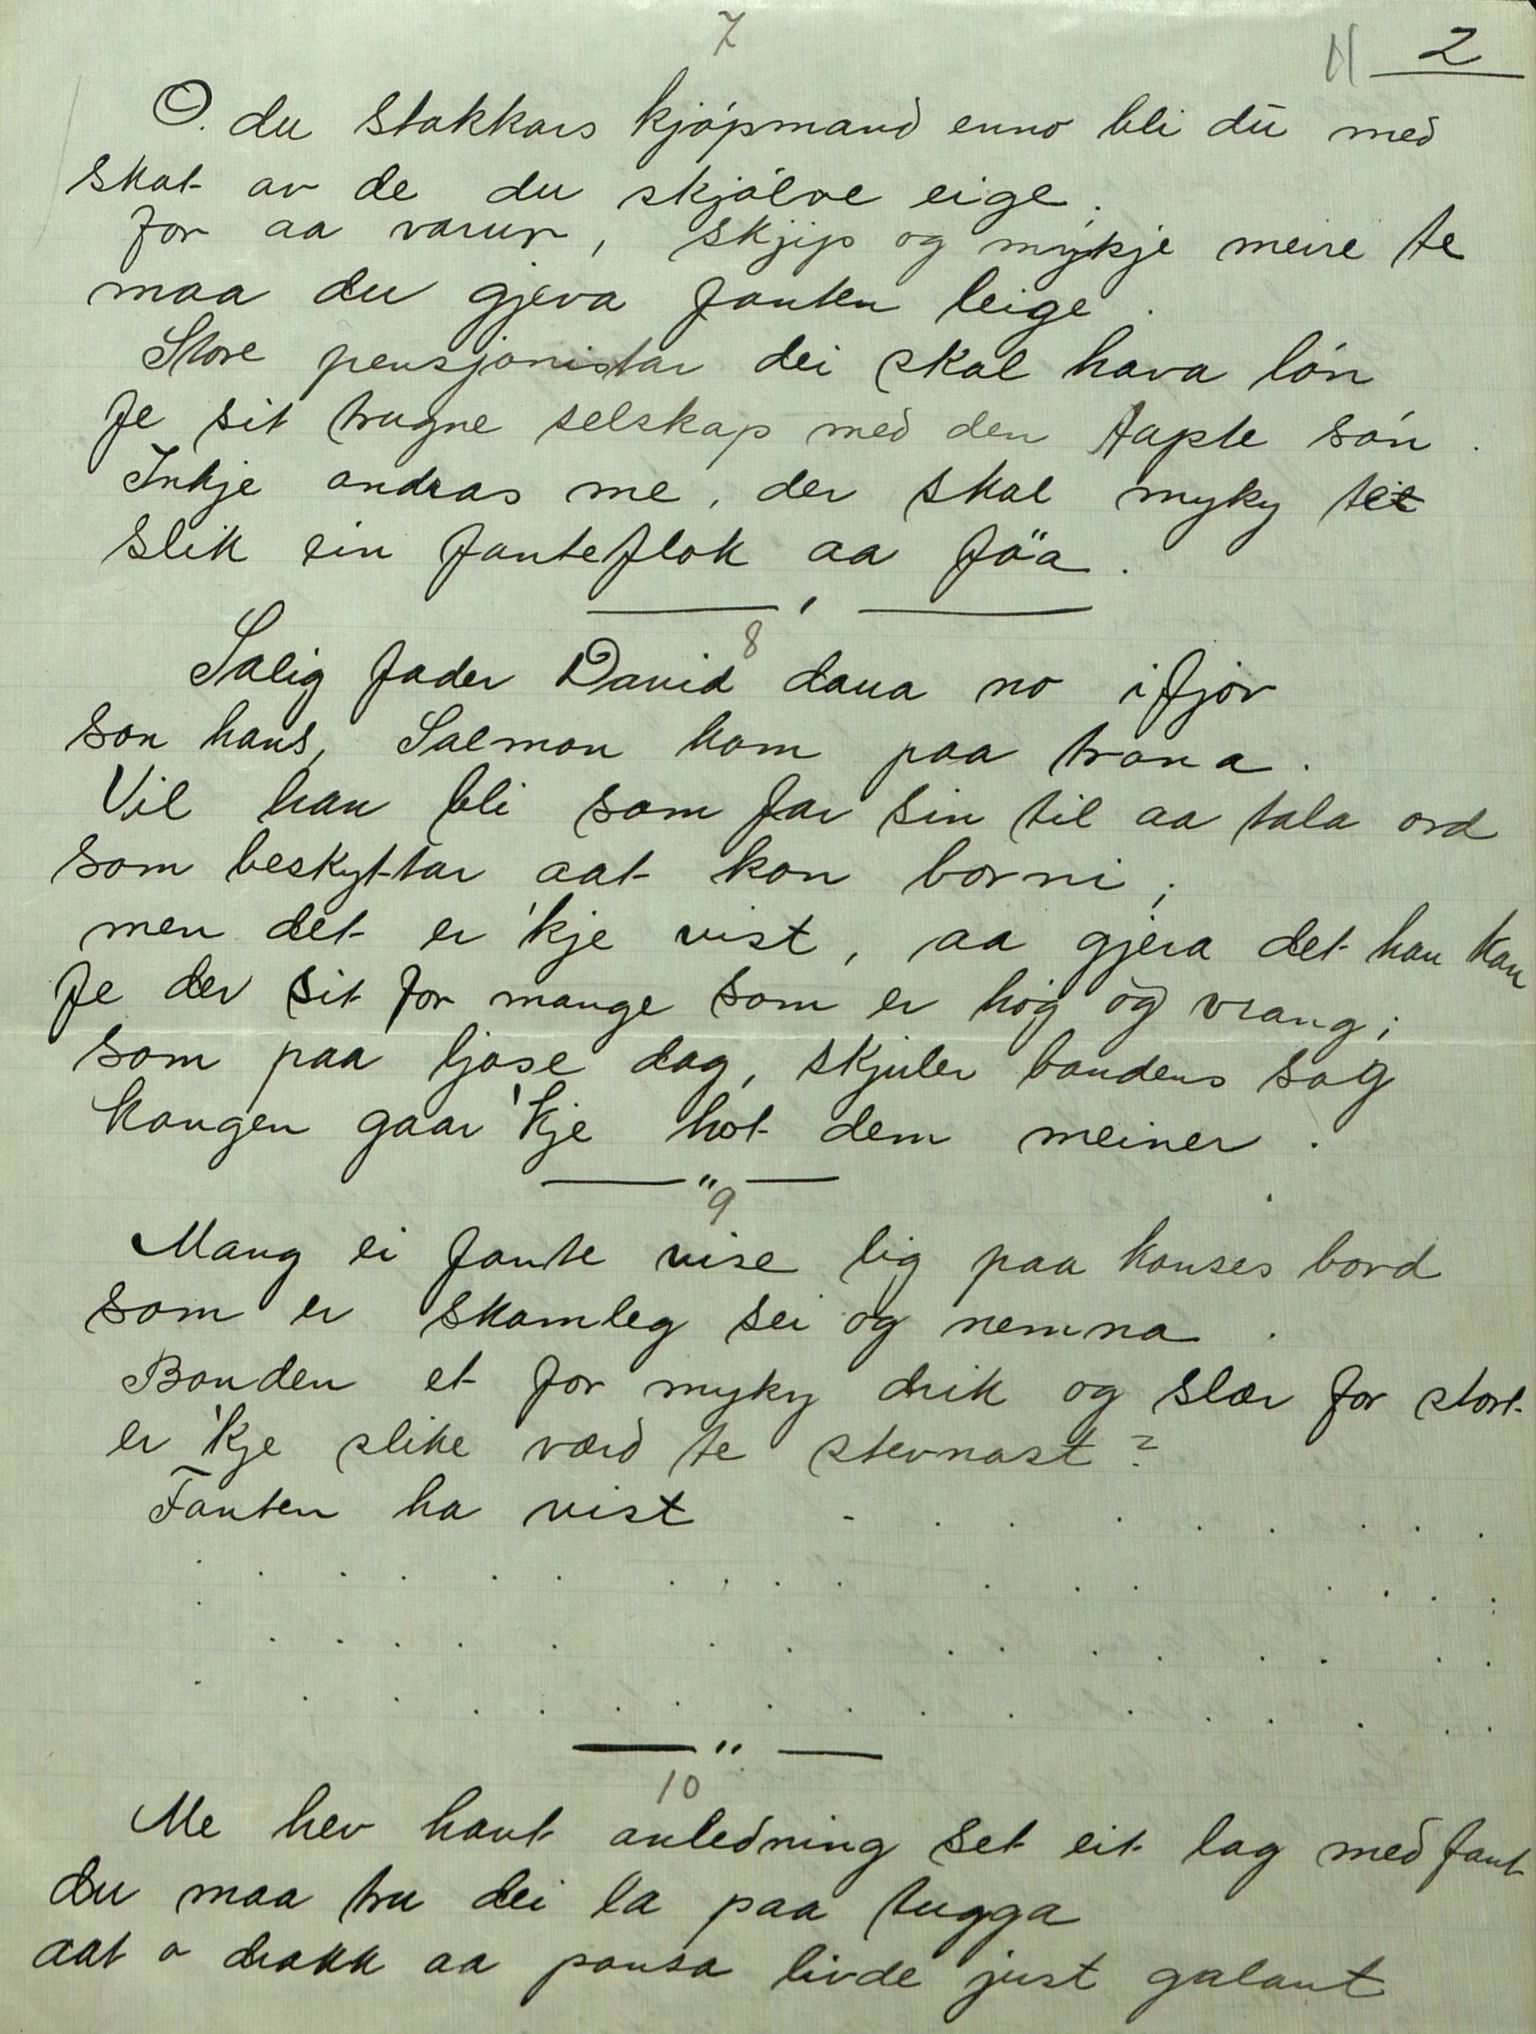 7
2
O. du stakkars kjöpmand enno bli du med
skat av de du skjölve eige.
for aa varur, skjip og mykje meire te
maa du gjeva fanten leige.
Store pensjonistar dei skal hava lön
fe sit trugne selskap med den tapte sön.
Inkje andras me, der skal myky tet
slik ein fanteflok aa föa.
8
Salig fader David daua no ifjor
son hans, Salmon kom paa trona.
Vil han bli som far sin til aa tala ord
som beskyttar aat kon borni;
men det er 'kje vist, aa gjera det han kan
fe der sit for mange som er høg og vrang;
som paa ljose dag, skjuler bondens sag
kongen gaar 'kje hot dem meiner.
9
Mang ei fante vise lig paa kanses bord
som er skamleg sei og nemna.
Bonden et for myky drik og slær for stort
er 'kje slike værd te stevnast?
Fanten ha vist - . . . . . . . .
10
Me hev havt anledning set eit lag med fant
du maa tru dei la paa tugga
aat o drakk aa pansa livde just galant